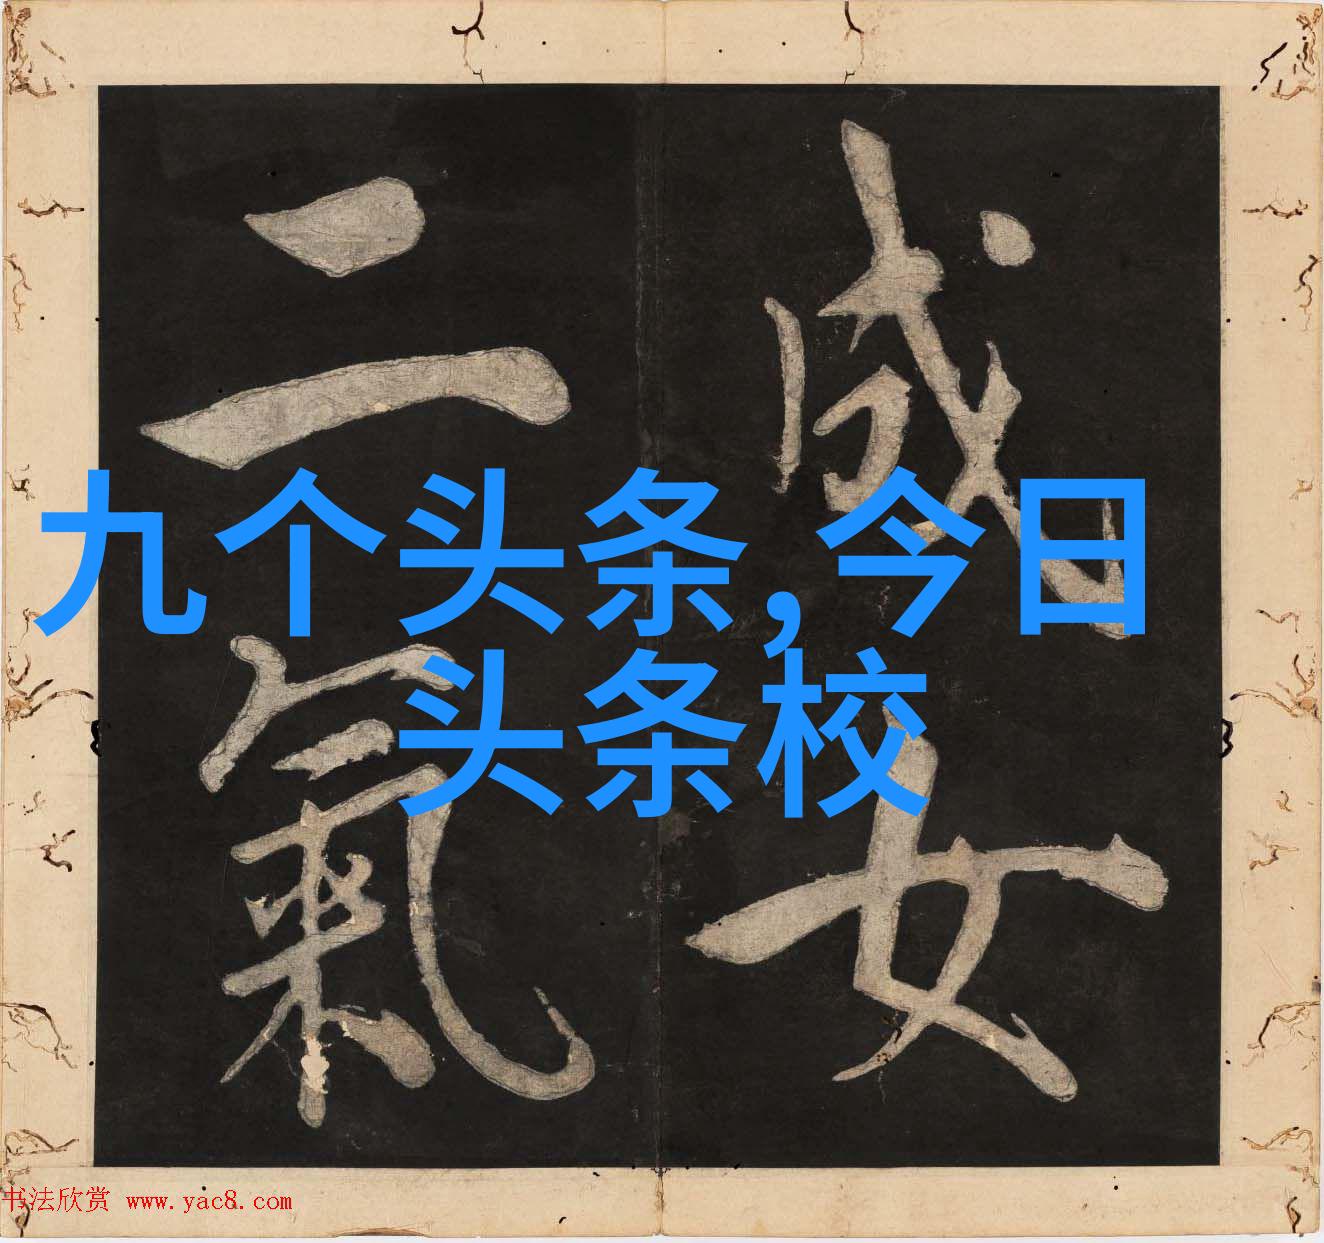 成女
二氣
九个头条,今日
头条校
书法欣赏 www.yac8.com